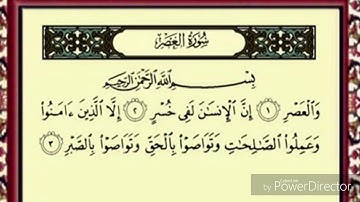 سُورَةُ الْعَصْرِ
بِسْمِ اللَّهِ الرَّحْمَٰنِ الرَّحِيمِ
وَالْعَصْرِ ۝١ إِنَّ الْإِنسَٰنَ لَفِى خُسْرٍ ۝٢ إِلَّا الَّذِينَ ءَامَنُوا
وَعَمِلُوا الصَّٰلِحَٰتِ وَتَوَاصَوْا بِالْحَقِّ وَتَوَاصَوْا بِالصَّبْرِ ۝٣
by PowerDirector